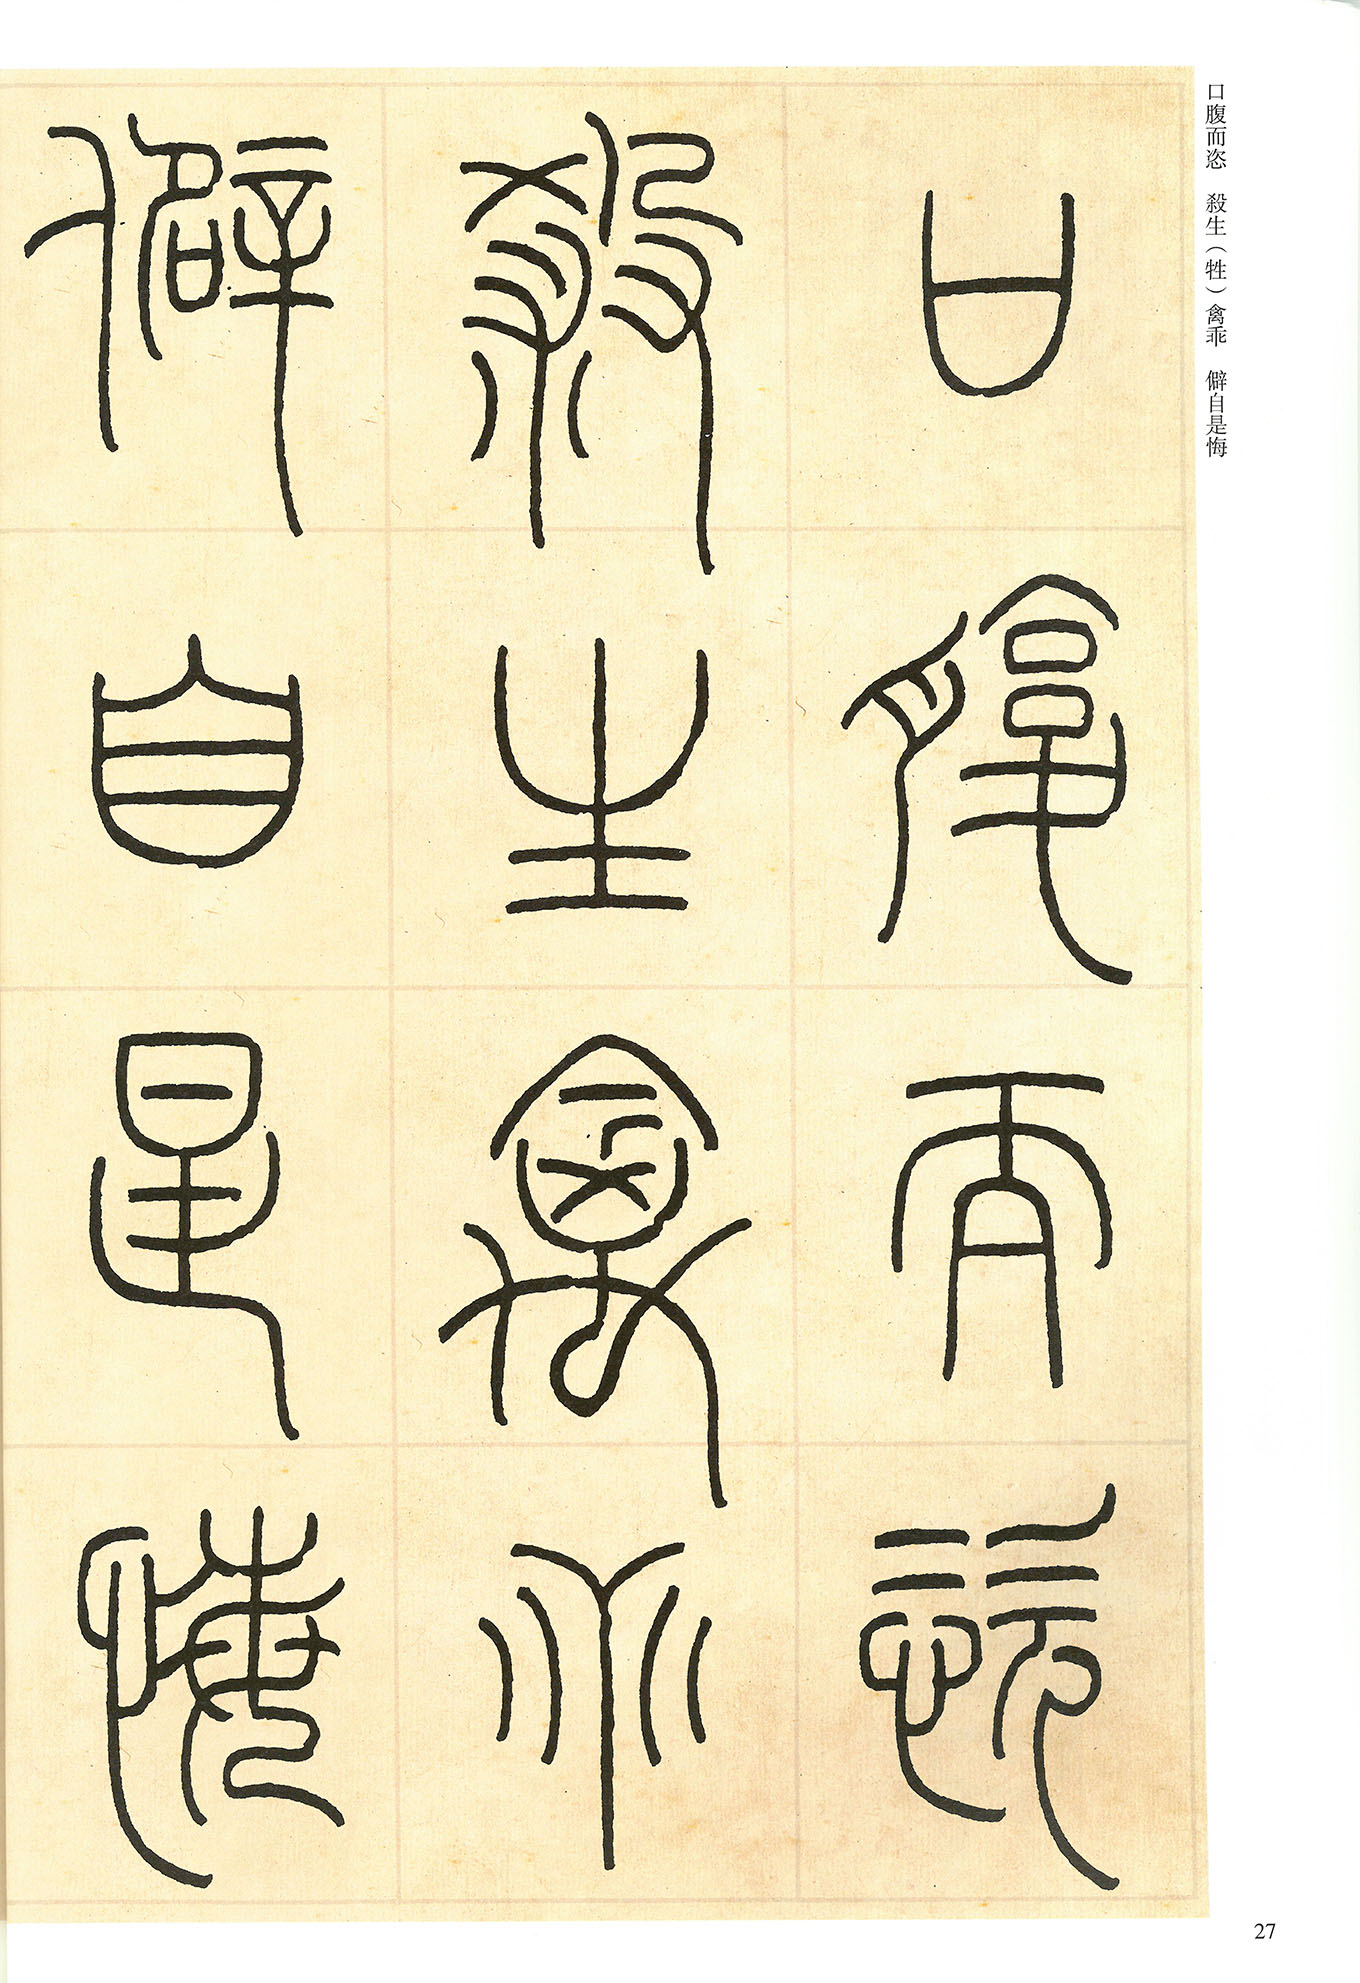 口腹而恣　殺生（牲）禽乖　僻自是悔
口腹而恣
殺生禽乖
僻自是悔
27